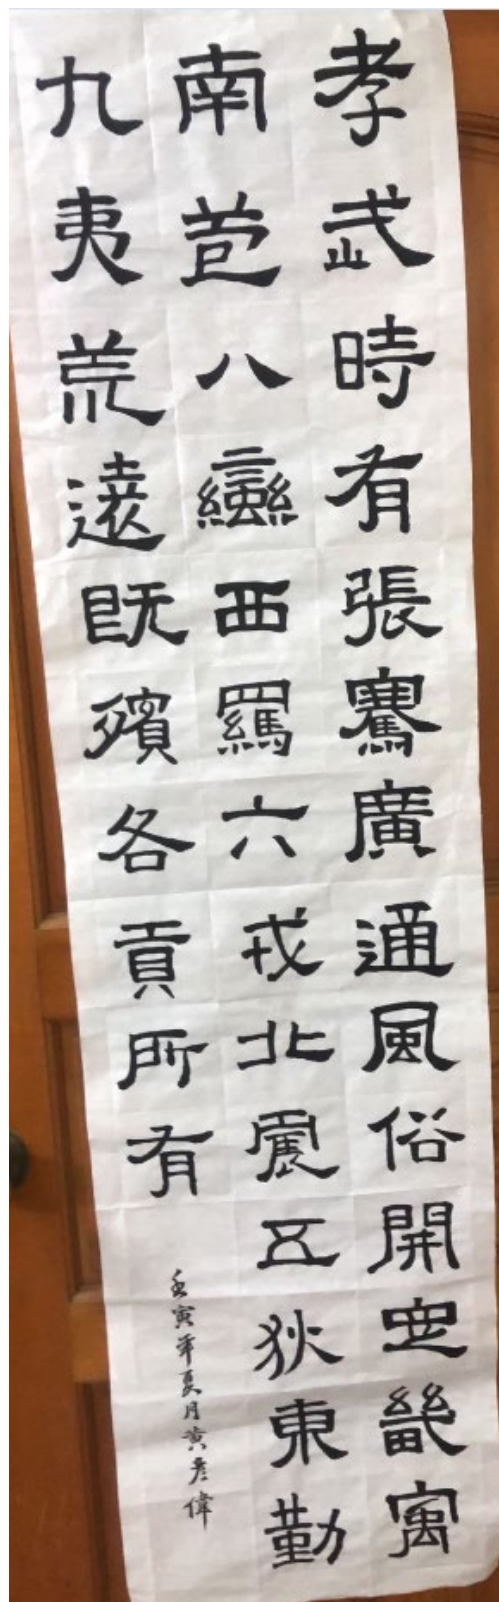 孝武時有張騫廣通風俗開定畿寓
南苞八蠻西羈六戎北震五狄東勤
九夷荒遠既殯各貢所有
壬寅年夏月黄彦偉